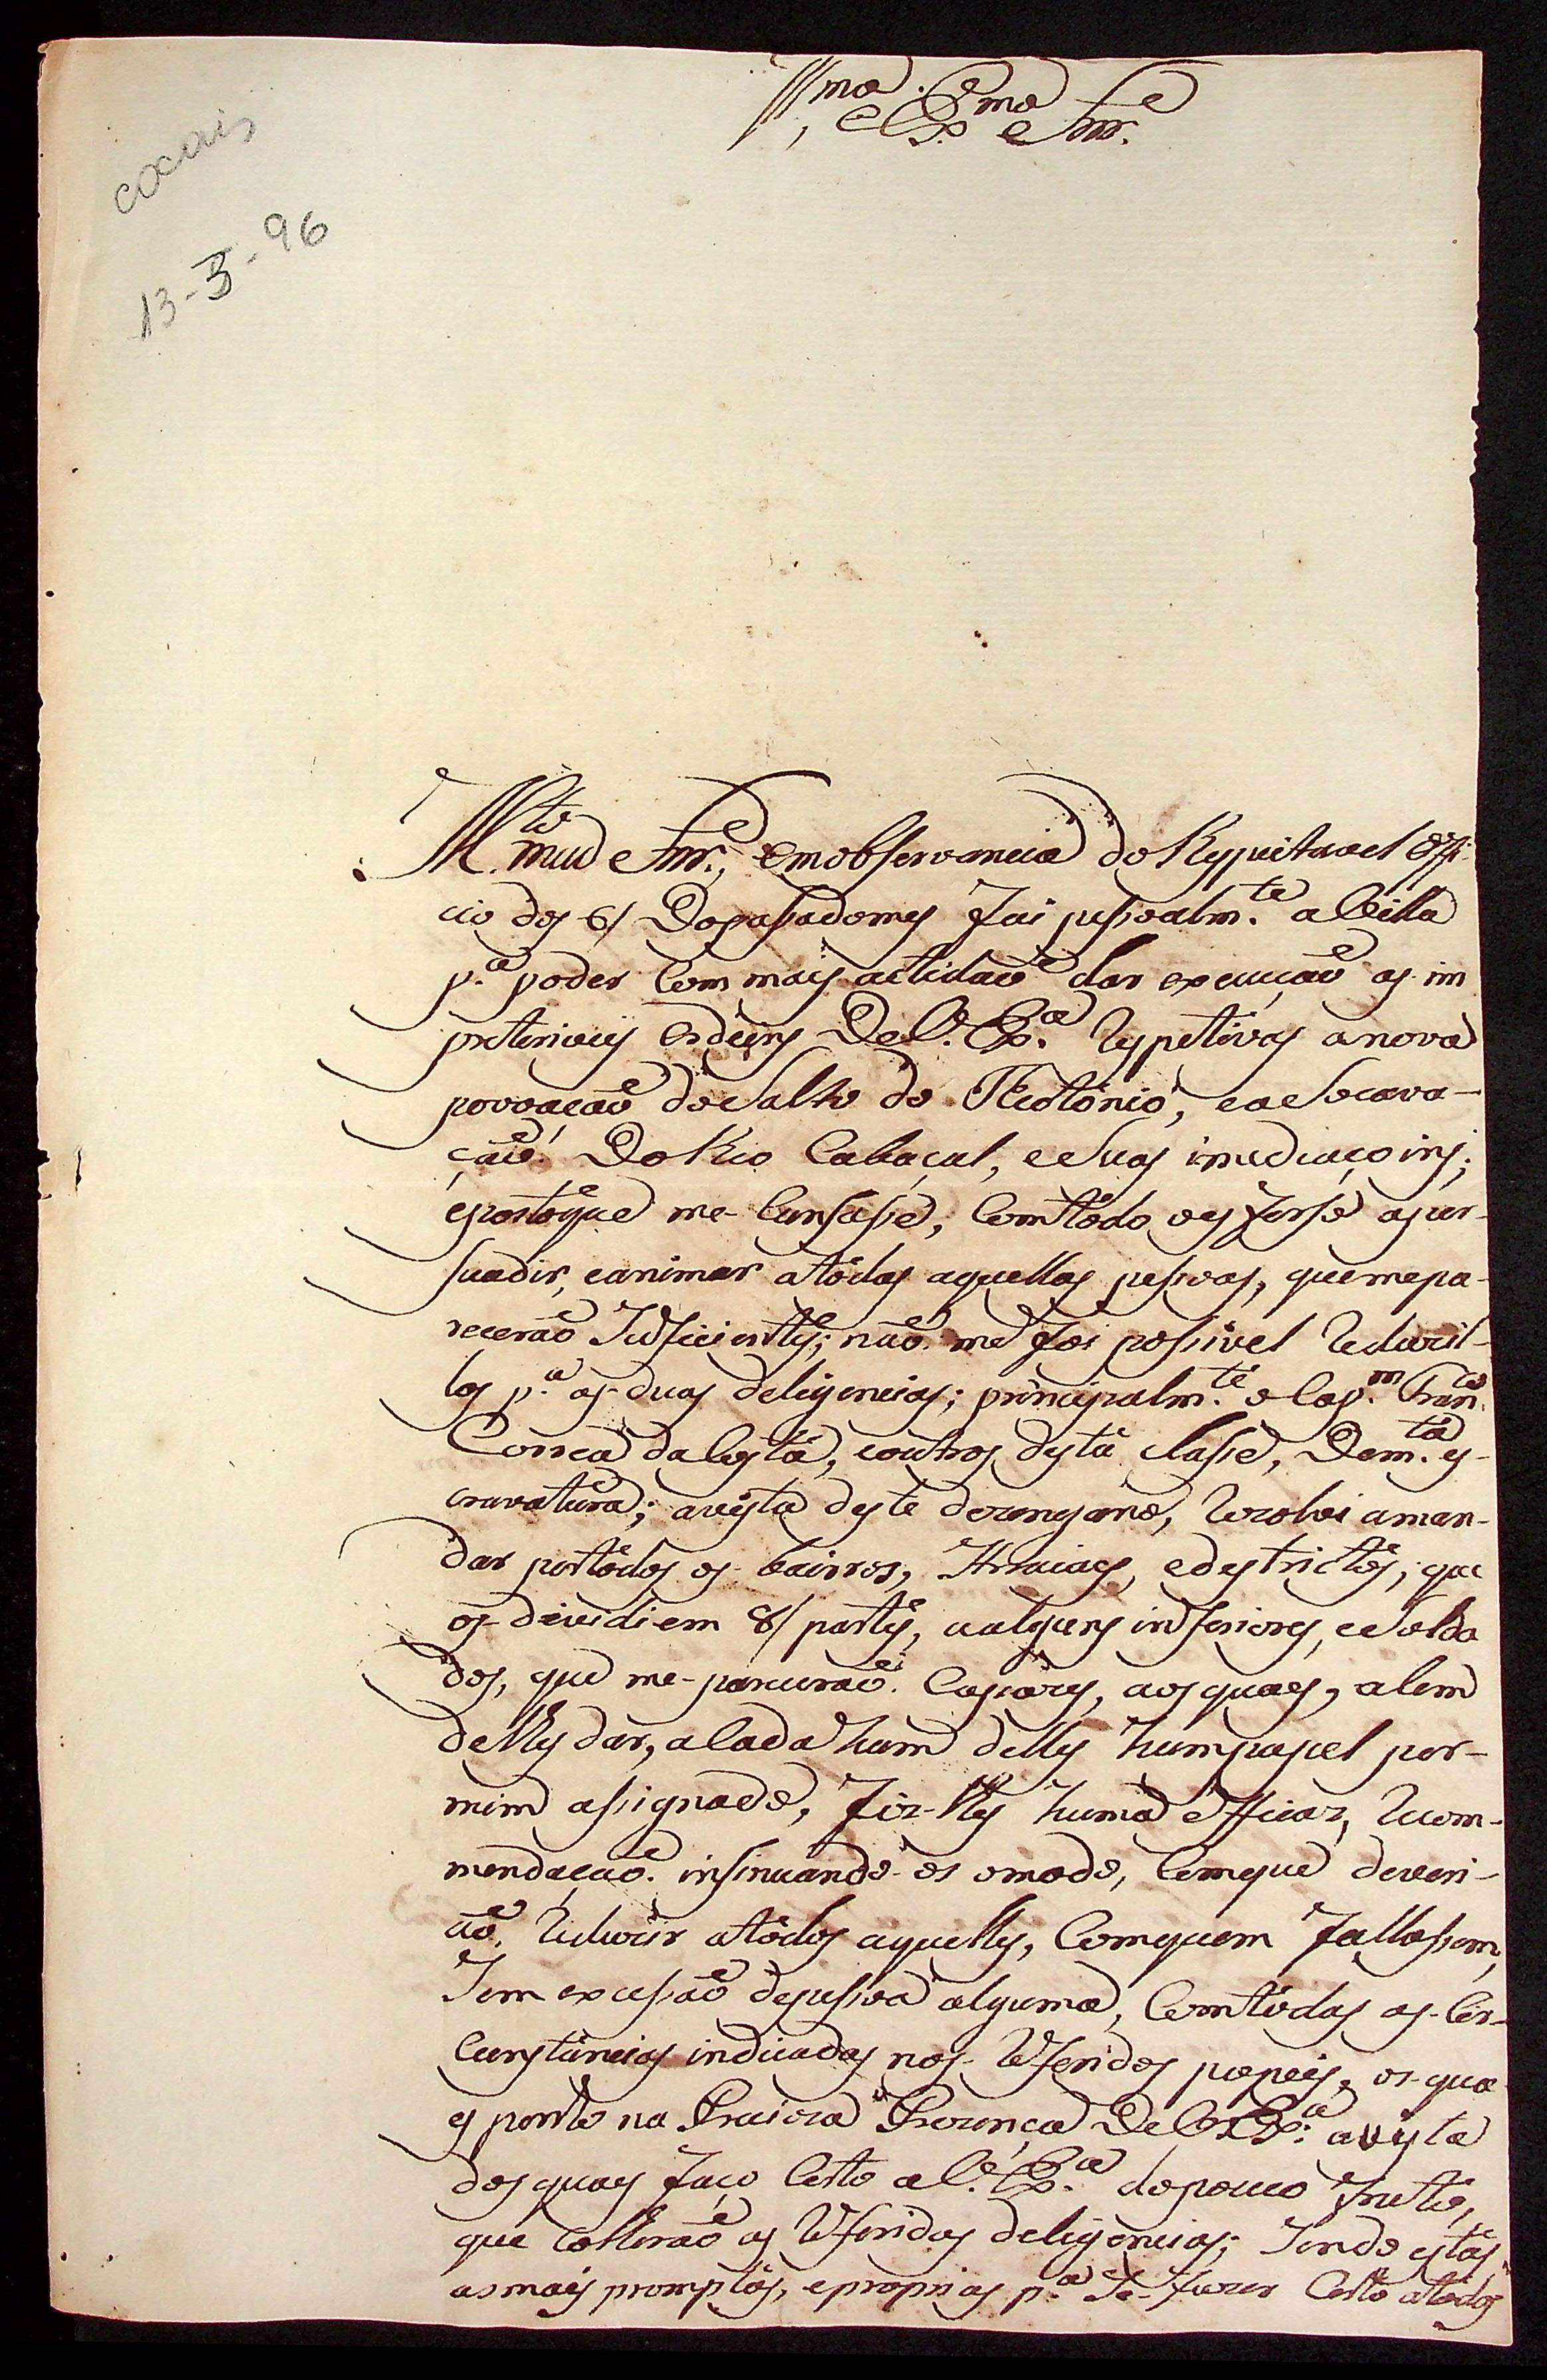 Illmo. e Exmo. Snr.
cocais
13-3-96
M.to meu Snr., em observancia do Respeitavel Offi-
cio dos 6/ Do passado mes fui pessoalm.te a Villa
p.a poder Com mais actidaõ dar execuçaõ as im
preteriveis Ordeins De V. Ex.a respetivas a nova
povoaçaõ do Salto do Theotônio, e a Socava-
çaõ Do Rio Cabaçal, e Suas imediaçoins;
e posto que me Cansase, Com tôdo o esforso a per-
suadir, e animar a tôdas aquellas pessoas, que me pa-
receraõ Sufficientes; naõ me foi possivel reduzil-
los p.a as duas deligencias; principalm.te o Cap.m Fran.co
Correa da Costa, e outros desta classe, De m.ta es-
cravatura; a vista deste dezengano, rezolvi a man-
dar por tôdos os bairros, Arraiaes, e destrictos, que
os dividi em 8/ partes, a alguns inferiores, e Solda
dos, que me pareceraõ Capazes, aos quaes, alem
de lhes dar, a Cada hum delles hum papel por
mim assignado, fiz-lhes huma efficaz, recom-
mendaçaõ insinuando-os o modo, Com que deveri-
aõ, reduzir a tôdos aquelles, Com quem fallassem,
Sem excesaõ de pessoa alguma, Com tôdas as Cir-
cunstancias indicadas nos referidos papeis, os qua
es ponho na Preciоza Prezença De V. Ex.a a vista
dos quaes faço Certo a V. Ex.a do pouco fruto,
que Colheraõ as referidas deligencias; Sendo estas
as mais promptas, e proprias p.a Se fazer Certo a tôdos